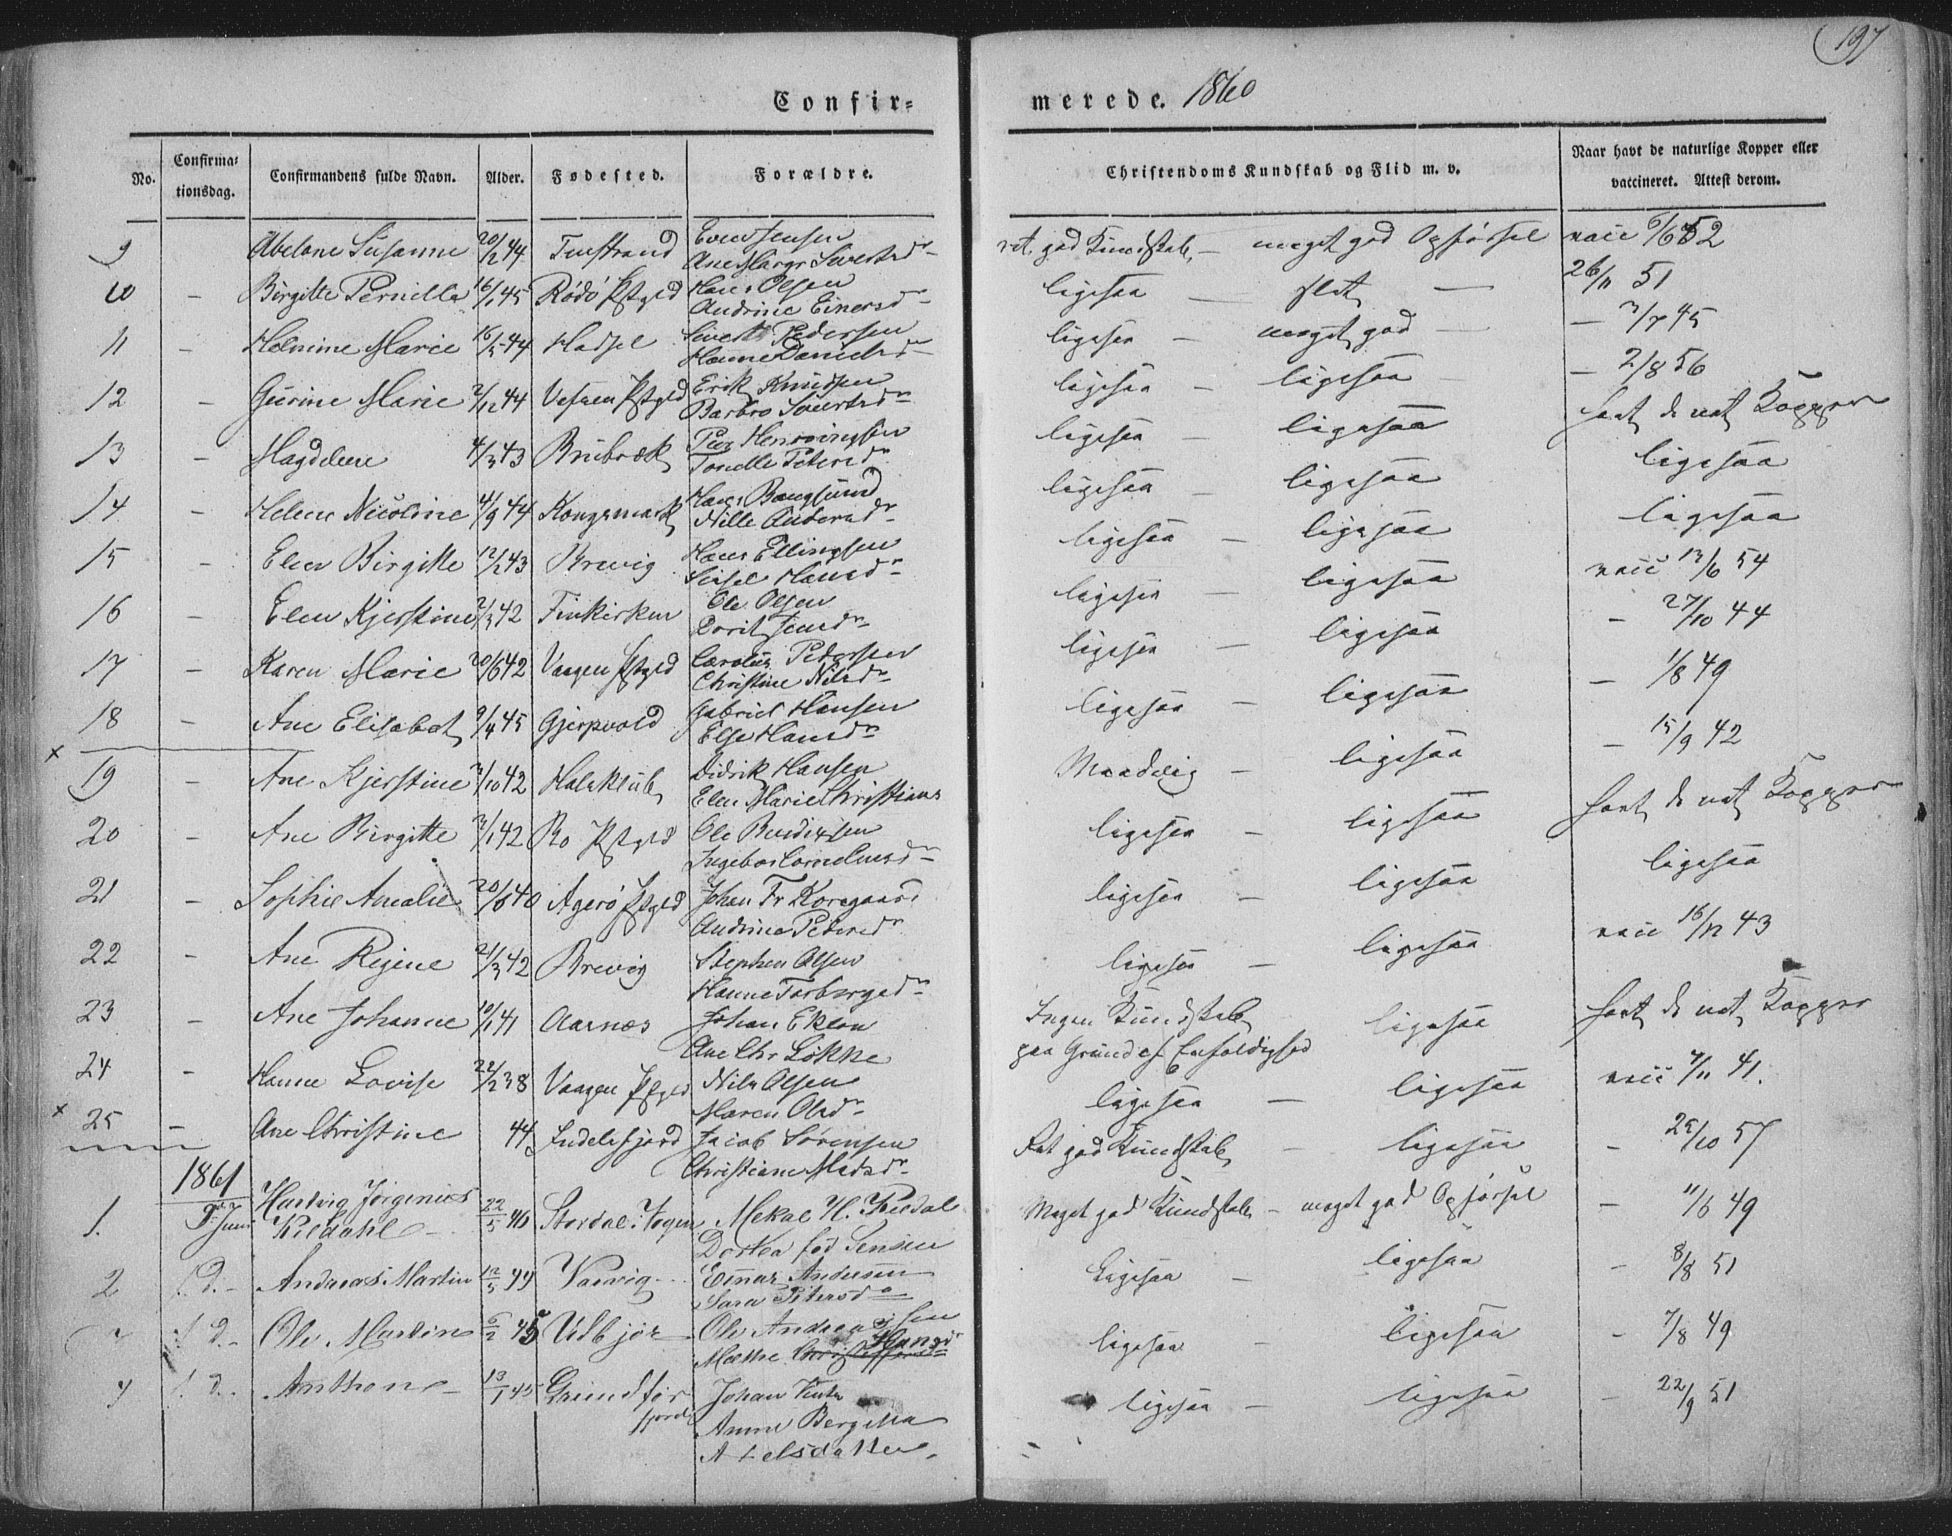 197
Confir-
merede. 1860
No.
Confirma-
tionsdag.
Confirmandens fulde Navn.
Alder.
Fødested.
Forældre.
Christendoms Kundskab og Flid m. v.
Naar havt de naturlige Kopper eller
vaccineret. Attest derom.
9 Abelone Susanne 20/12 44 Evert Jensen
ret god Kundskab - meget god Opførsel vacc 52
10 - Birgitte Pernille 16/1 45 Rödö Pstgld Hans Olsen
Andrine Einersdr
ligesaa - slet - 26/11 51
11 - Helmine Marie 16/5 44 Hadsel Sivert Pedersen
Hanne Danielsdr
ligesaa - meget god - 3/7 45
12 - Gurine Marie 2/12 44 Vefsen Pstgld Erik Knudsen
Barbro Sivertsdr
ligesaa - ligesaa - 2/8 56
13 - Magdelene 4/3 43 Peer Henningsen
Tonelle Petersdr
ligesaa - ligesaa havt de nat Kopper
14 - Helene Nicoline 4/9 44 Kongsmark Hans Bangsund
Nille Andersdr
ligesaa - ligesaa ligesaa
15 - Elen Birgitte 12/2 43 Brevig Hans Ellingsen
Hansdr
ligesaa - ligesaa ligesaa
16 - Elen Kjerstine 2/3 42 Finkirken Ole Olsen
Dorrit Jensdr
ligesaa - ligesaa vacc 13/6 54
17 - Karen Marie 20/6 42 Vaagen Pstgld Carolus Pedersen
Christine Nilsdr
ligesaa - ligesaa - 27/10 44
18 - Ane Elisabet 9/4 45 Gjerpvold Gabriel Hansen
Else Hansdr
ligesaa - ligesaa - 1/8 49
x 19 - Ane Kjerstine 3/10 42 Didrik Hansen
Elen Marie Christians
Maadelig - ligesaa - 15/9 42
20 - Ane Birgitte 3/1 42 Bo Pstgld Ole Bendixsen
Ingebor Corneliusdr
ligesaa - ligesaa havt de nat Kopper
21 - Sophie Amalie 20/6 40 Agerö Pstgld Johan Fr Koregaard
Andrina Pedersdr
ligesaa - ligesaa ligesaa
22 - Ane Regine 21/3 42 Brevig Stephen Olsen
Hanne Torbergsdr
ligesaa - ligesaa vacc 16/12 43
23 - Ane Johanne 10/1 41 Aarnæs Johan
Ane Chr Lökke
Ingen Kundskab
paa Grund af Enfoldighed ligesaa havt de nat Kopper
24 - Hanne Lovise 22/2 38 Vaagen Pstgld Nils Olsen
Maren Olsdr
ligesaa - ligesaa vacc 7/11 41.
x 25 - Ane Christine 44 Indelefjord Jacob Sörensen
Christiane Madsdr
Ret god Kundskab - ligesaa - 25/10 57
1861
1. Juni Hartvig Jørginius
Kildahl 22/5 46 Stordal i Sogn Mekal H. Kildal
Dortea fød Jensen
Meget god Kundskab - meget god Opførsel - 11/6 49
2 1. D. - Andreas Martin 12/5 44 Vasvig Einar Andersen
Sara Petersdr
Ligesaa - ligesaa - 8/8 51
d. - Ole Martin 6/2 45 Udbjör Ole Andreassen
Mætte Christoffersdr Hansdr
ligesaa - ligesaa - 7/8 49
4 d. - Anthon 13/1 45 Grundför
fjord Johan
Anne Bergitta
Axelsdatter
ligesaa - ligesaa - 22/9 51